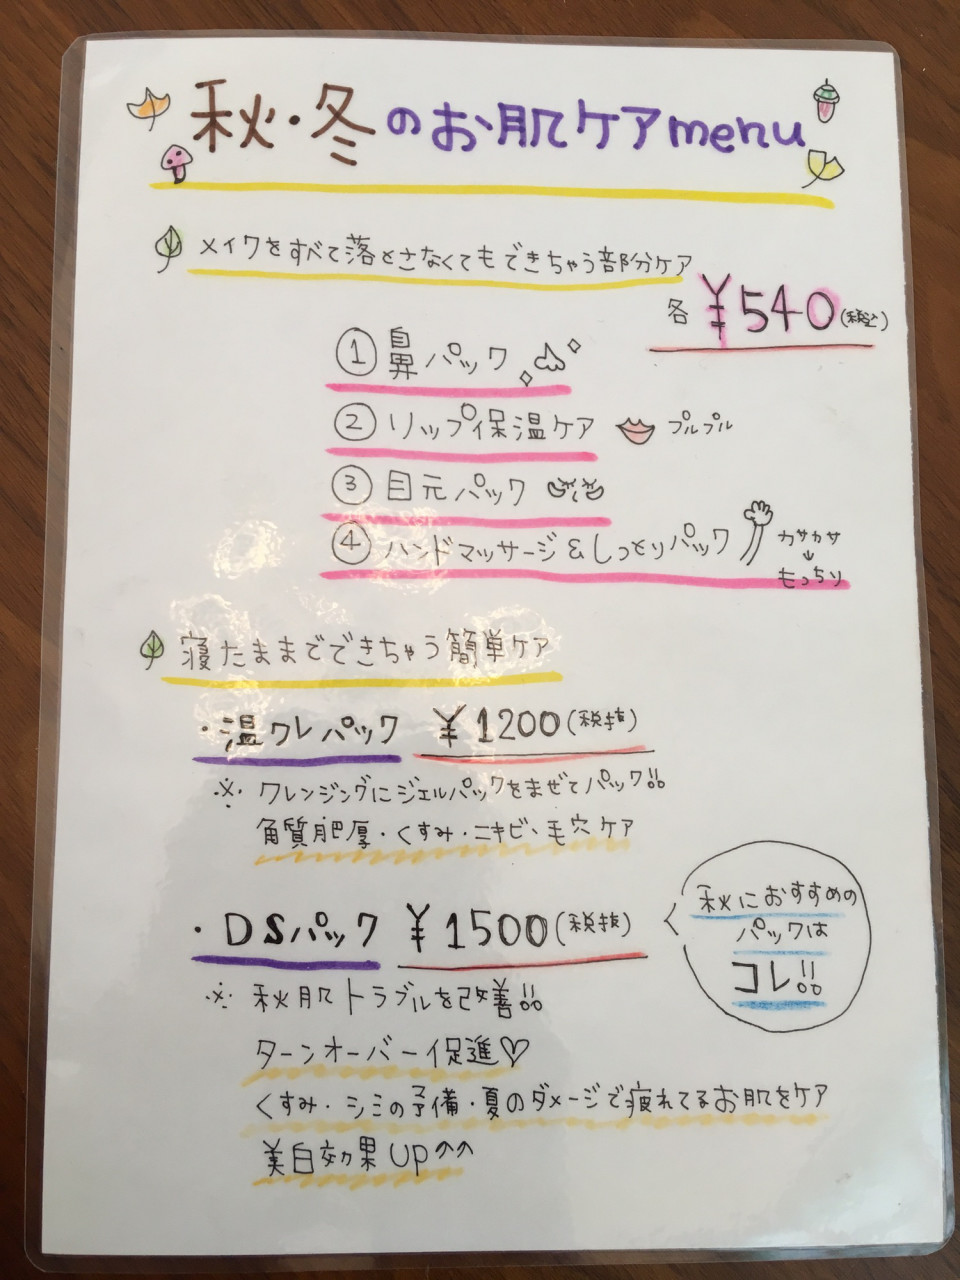 秋・冬のお肌ケアmenu
メイクをすべて落とさなくてもできちゃう部分ケア
各 ¥540(税込)
① 鼻パック
② リップ保温ケア プルプル
③ 目元パック
④ ハンドマッサージ&しっとりパック カサカサ
↓
もっちり
寝たままでできちゃう簡単ケア
・温クレパック ¥1200(税抜)
※ クレンジングにジェルパックをまぜてパック!!
角質肥厚・くすみ・ニキビ、毛穴ケア
・DSパック ¥1500(税抜)
秋におすすめの
パックは
コレ!!
※ 秋肌トラブルを改善!!
ターンオーバー促進♡
くすみ・シミの予備・夏のダメージで疲れてるお肌をケア
美白効果up^^